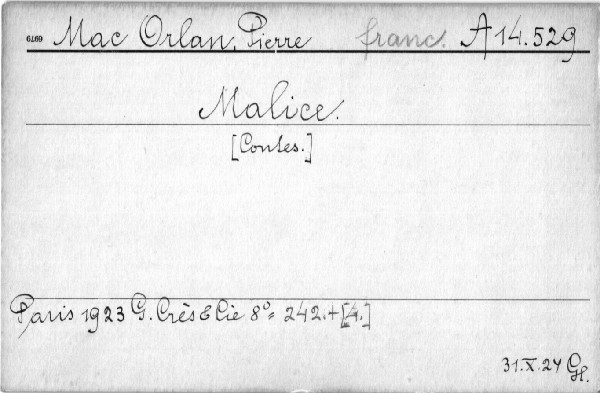 6169 Mac Orlan, Pierre franc. A 14.529
Malice.
[Contes.]
Paris 1923 G. Crès & Cie 8º= 242.+[4.]
31.X.27 Gl.